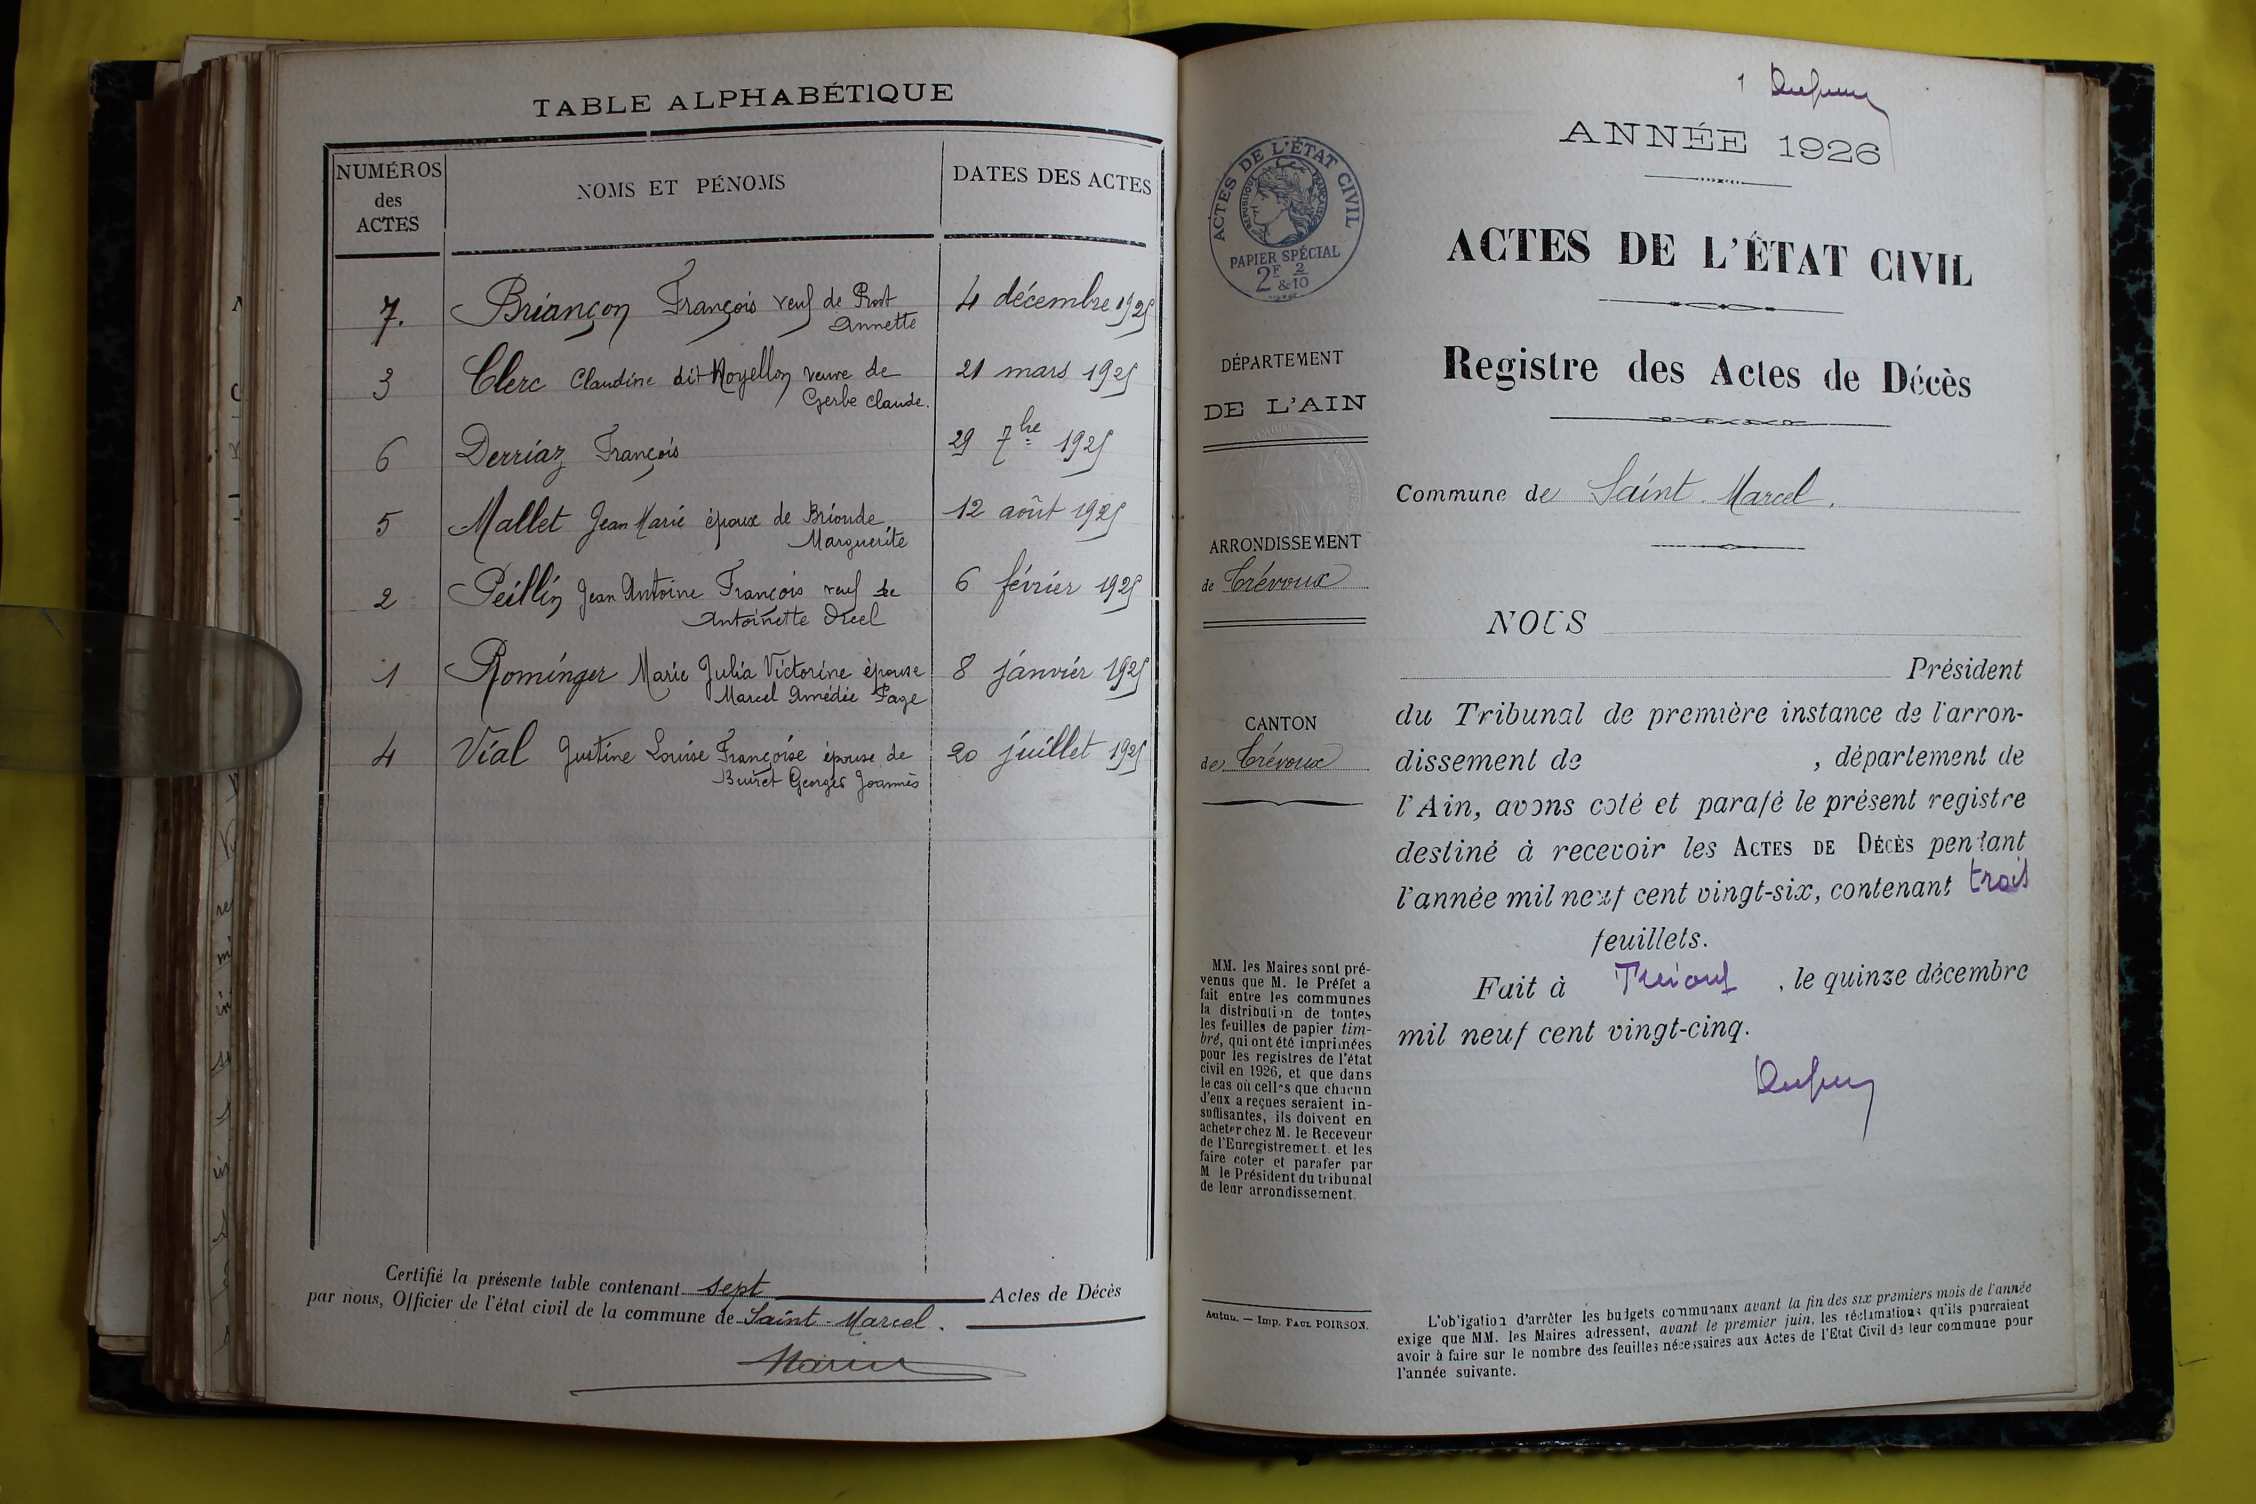 TABLE ALPHABÉTIQUE
NUMÉROS
des
ACTES
NOMS ET PÉNOMS
DATES DES ACTES
7. Briançon François veuf de Prost 4 décembre 1925
Annette
3 Clerc Claudine dit Noyellon veuve de 21 mars 1925
Gerbe Claude.
6 Derriaz François 29 7bre 1925
5 Mallet Jean Marie époux de Brionde 12 août 1925
Marguerite
2 Peillin Jean Antoine François veuf de 6 février 1925
Antoinette Dreel
1 Rominger Marie Julia Victorine épouse 8 janvier 1925
Marcel Amédée Page
4 Vial Justine Louise Françoise épouse de 20 juillet 1925
Buiret Georges Joannès
Certifié la présente table contenant sept Actes de Décès
par nous, Officier de l'état civil de la commune de Saint-Marcel.
1
ANNÉE 1926
ACTES DE L'ÉTAT CIVIL
RÉPUBLIQUE FRANÇAISE
PAPIER SPÉCIAL
2F & 2/10
ACTES DE L'ÉTAT CIVIL
Registre des Actes de Décès
DÉPARTEMENT
DE L'AIN
Commune de Saint-Marcel.
ARRONDISSEMENT
de Trévoux
CANTON
de Trévoux
NOUS
Président
du Tribunal de première instance de l'arron-
dissement de , département de
l'Ain, avons coté et parafé le présent registre
destiné à recevoir les ACTES DE DÉCÈS pendant
l'année mil neuf cent vingt-six, contenant trois
feuillets.
Fait à Trévoux , le quinze décembre
mil neuf cent vingt-cinq.
MM. les Maires sont pré-
venus que M. le Préfet a
fait entre les communes
la distribution de toutes
les feuilles de papier tim-
bré, qui ont été imprimées
pour les registres de l'état
civil en 1926, et que dans
le cas où celles que chacun
d'eux a reçues seraient in-
suffisantes, ils doivent en
acheter chez M. le Receveur
de l'Enregistrement et les
faire coter et parafer par
M le Président du tribunal
de leur arrondissement.
Autun. — Imp. PAUL POIRSON.
L'obligation d'arrêter les budgets communaux avant la fin des six premiers mois de l'année
exige que MM. les Maires adressent, avant le premier juin, les réclamations qu'ils pourraient
avoir à faire sur le nombre des feuilles nécessaires aux Actes de l'Etat Civil de leur commune pour
l'année suivante.